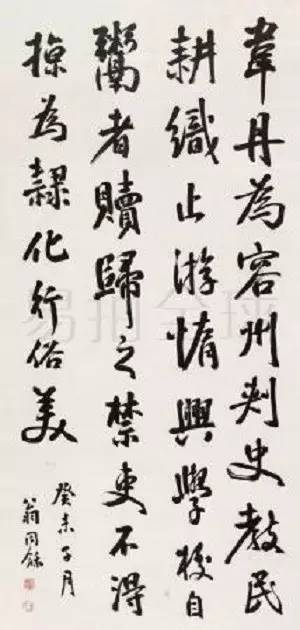 韋丹為容州刺史教民
耕織止游惰興學校自
鬻者贖歸之禁吏不得
掠為隸化行俗美
癸未子月
翁同龢
易拍全球